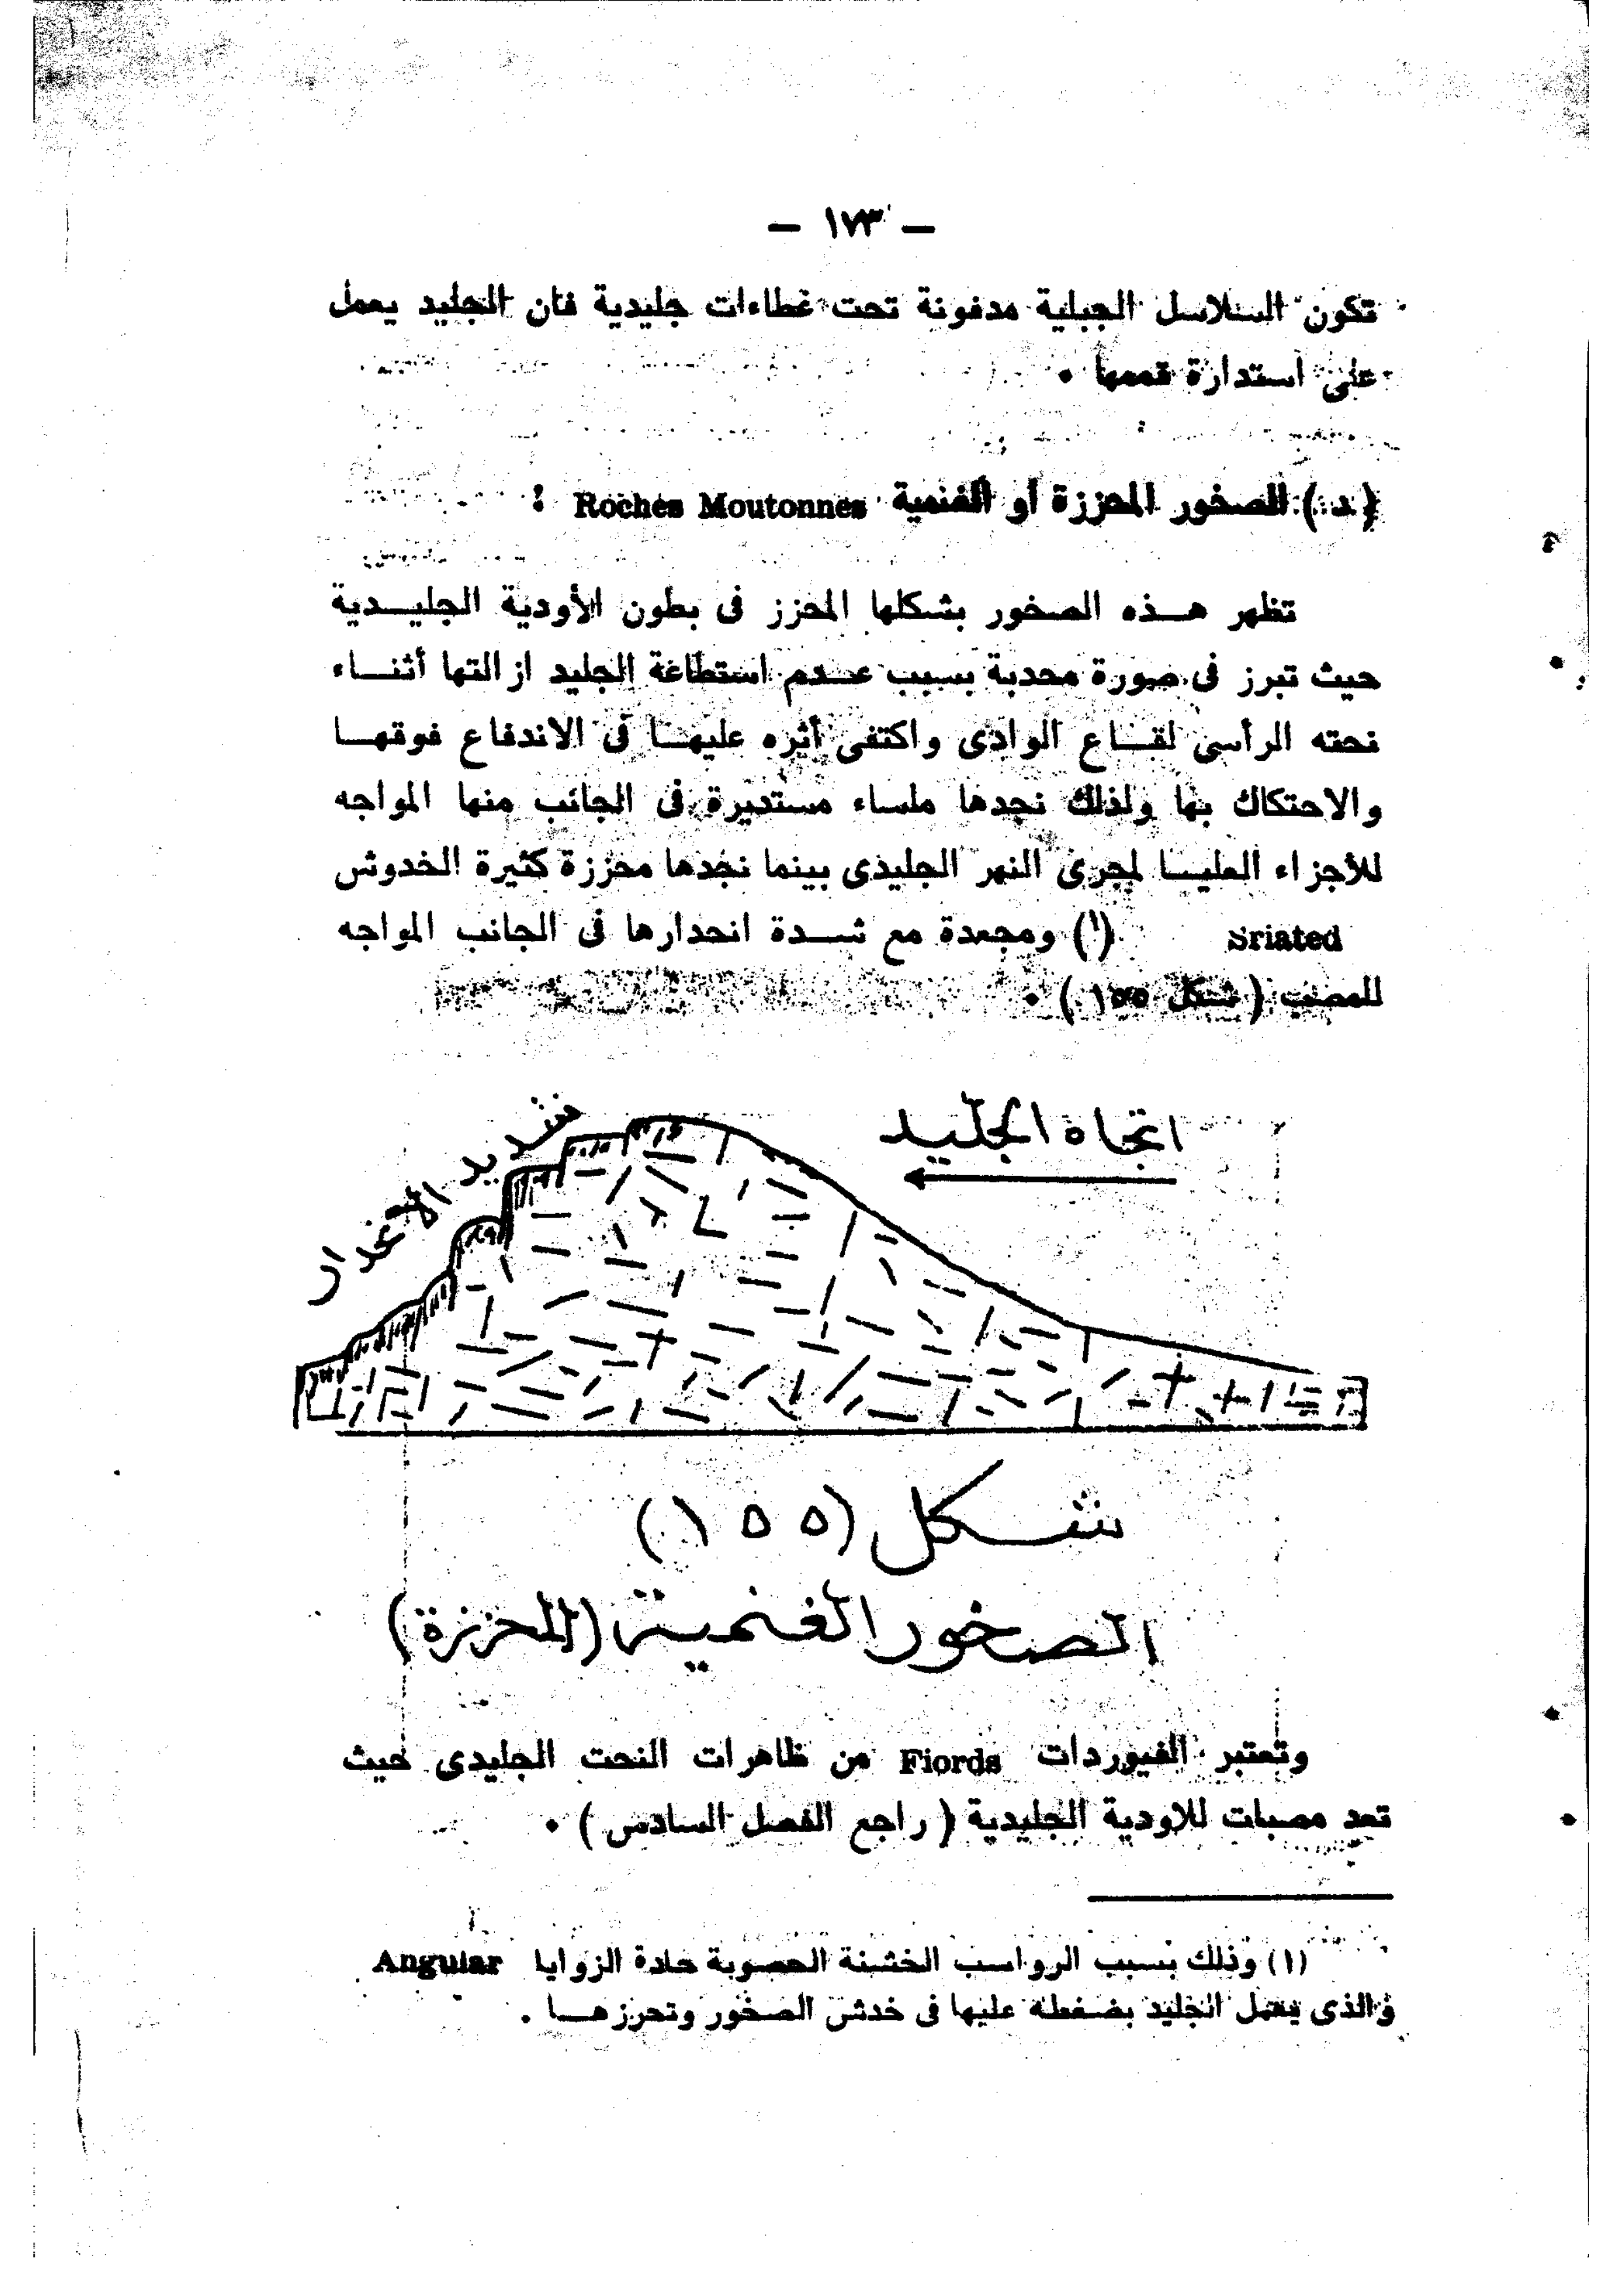 — ١٧٣ —
تكون السلاسل الجبلية مدفونة تحت غطاءات جليدية فان الجليد يعمل
على استدارة قممها ٠
( د ) الصخور المحززة أو الغنمية Roches Moutonnes :
تظهر هـذه الصخور بشكلها المحزز فى بطون الأودية الجليـدية
حيث تبرز فى صورة محدبة بسبب عـدم استطاعة الجليد ازالتها أثنـاء
نحته الرأسى لقـاع الوادى واكتفى أثره عليهـا فى الاندفاع فوقهـا
والاحتكاك بها ولذلك نجدها ملساء مستديرة فى الجانب منها المواجه
للأجزاء العليـا لمجرى النهر الجليدى بينما نجدها محززة كثيرة الخدوش
Sriated (١) ومجعدة مع شـدة انحدارها فى الجانب المواجه
للمصب ( شكل ١٥٥ ) ٠
اتجاه الجليد
شديد الانحدار
شكل (١٥٥)
الصخور الغنمية (المحززة)
وتعتبر الفيوردات Fiords من ظاهرات النحت الجليدى حيث
تعد مصبات للاودية الجليدية ( راجع الفصل السادس ) ٠
(١) وذلك بسبب الرواسب الخشنة الحصوية حادة الزوايا Angular
والذى يعمل الجليد بضغطه عليها فى خدش الصخور وتحززهـا .